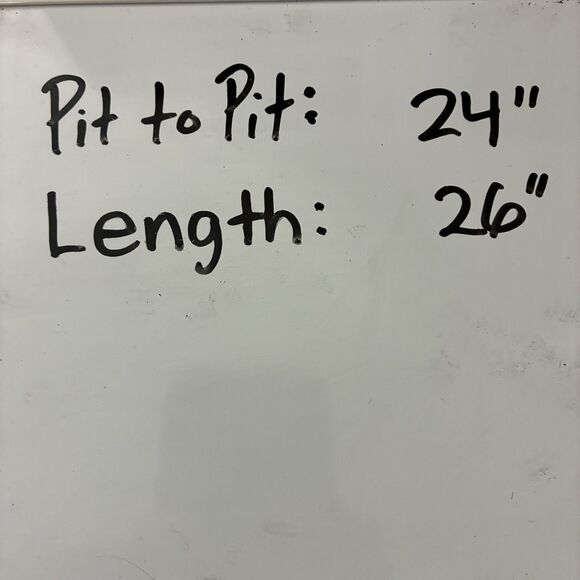 Pit to Pit: 24"
Length: 26"